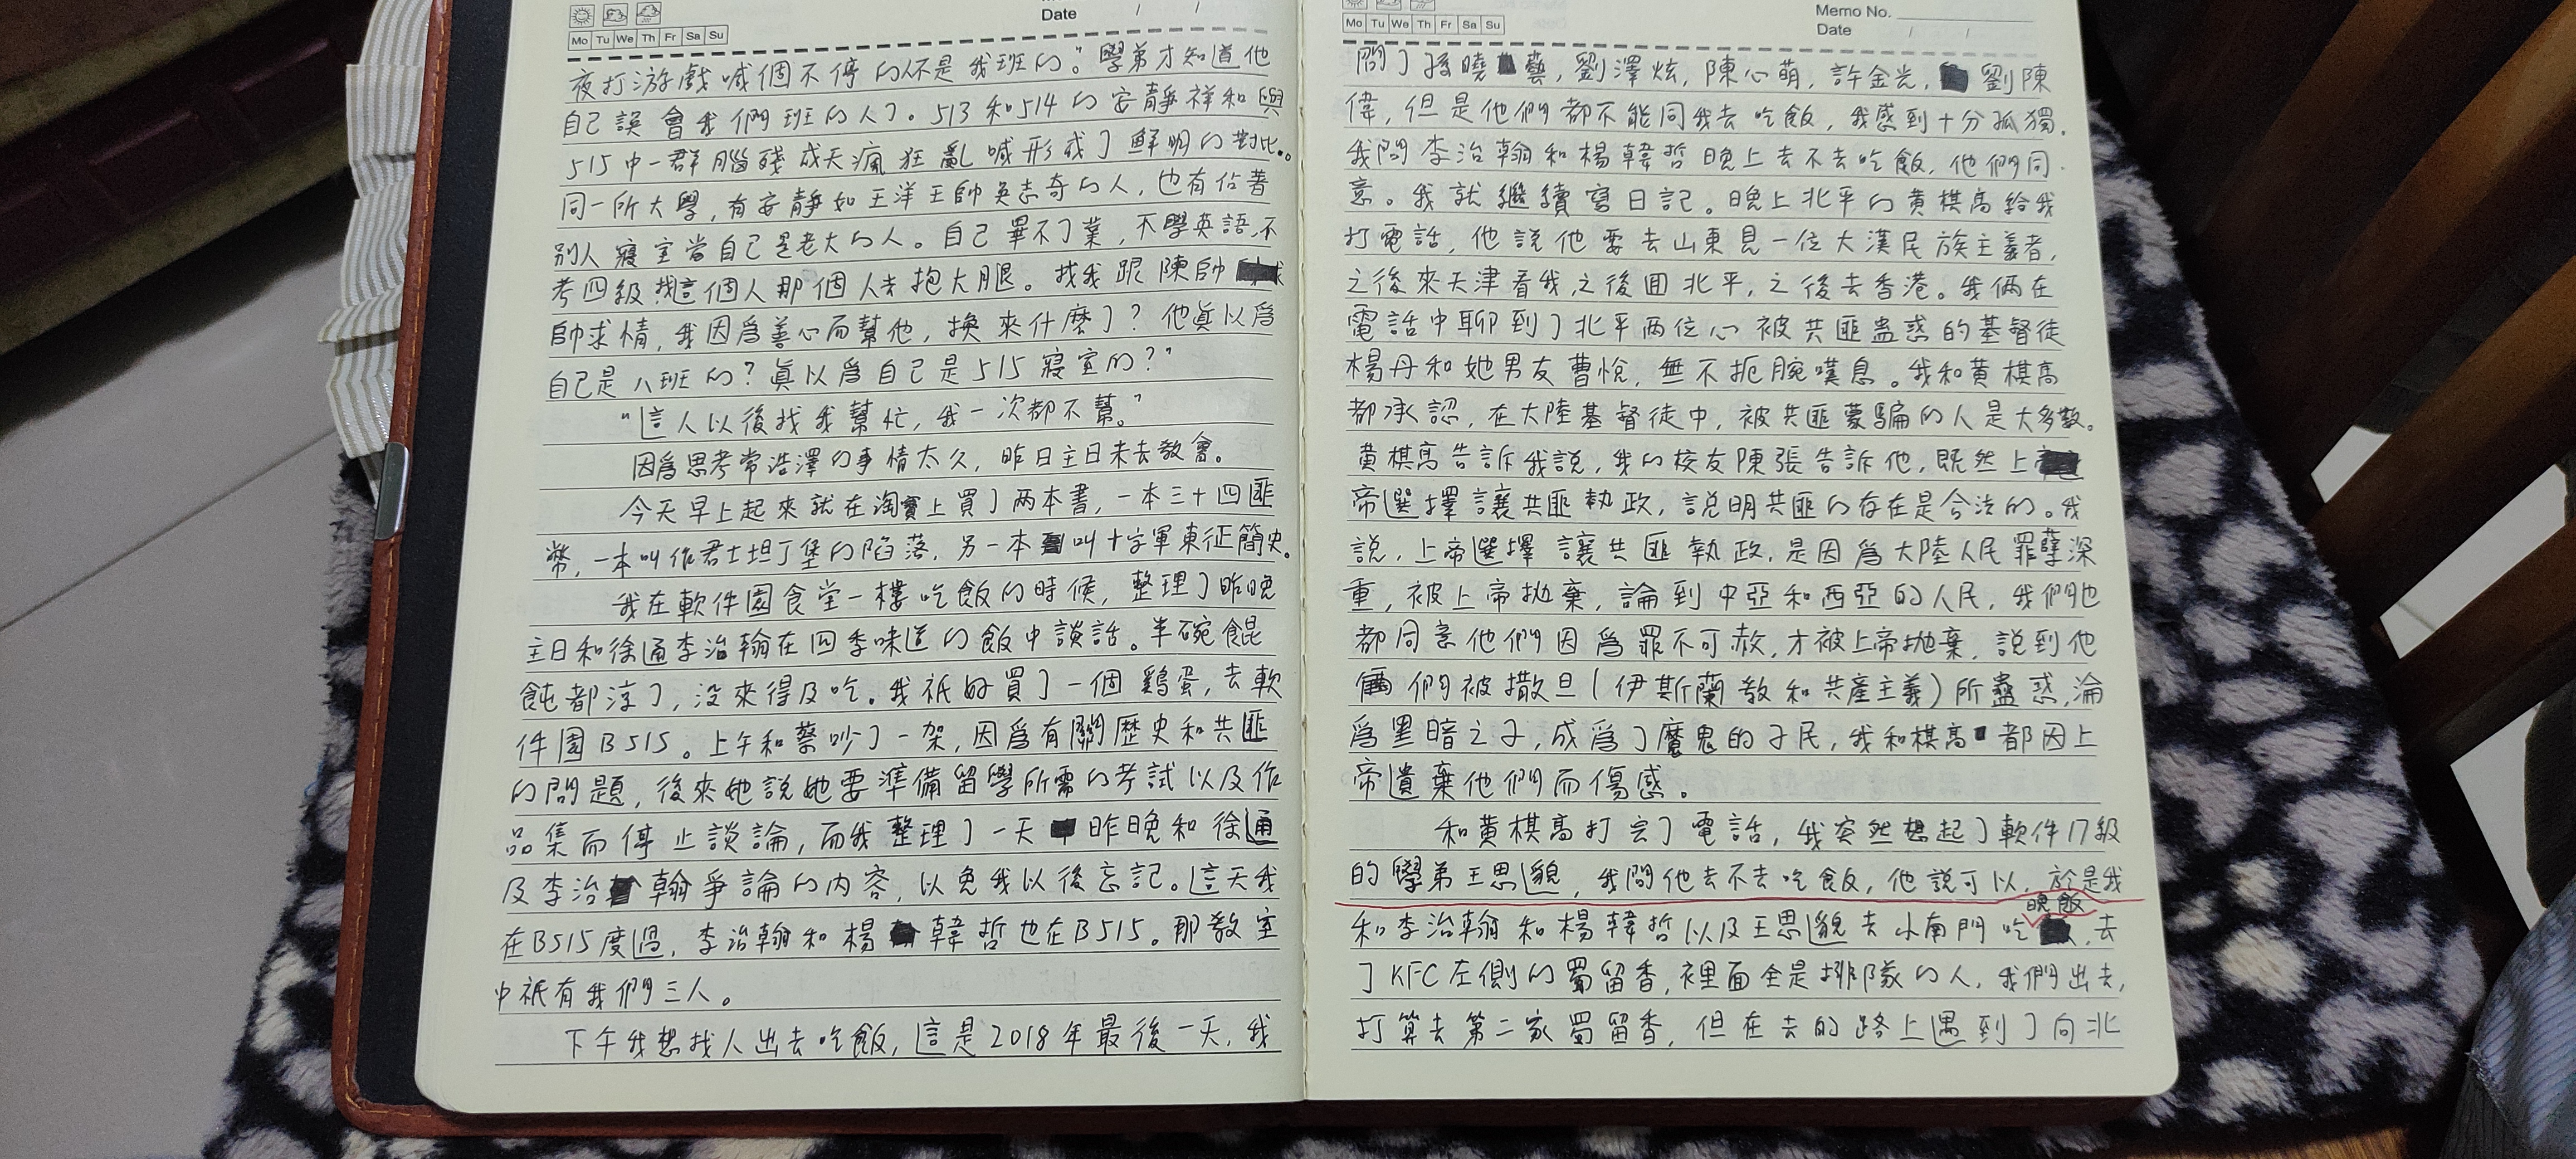 Date / /
Mo Tu We Th Fr Sa Su
夜打游戲喊個不停的人不是我班的。”學弟才知道他
自己誤會我們班的人了。513和514的安靜祥和與
515中一群腦殘成天瘋狂亂喊形成了鮮明的對比。
同一所大學，有安靜如王洋王帥吳志奇的人，也有佔著
別人寢室當自己是老大的人。自己畢不了業，不學英語，不
考四級，找這個人那個人去抱大腿。找我跟陳帥
帥求情，我因爲善心而幫他，換來什麼了？他眞以爲
自己是八班的？眞以爲自己是515寢室的？”
“這人以後找我幫忙，我一次都不幫。”
因爲思考常浩澤的事情太久，昨日主日未去教會。
今天早上起來就在淘寶上買了两本書，一本三十四匪
幣，一本叫作君士坦丁堡的陷落，另一本叫十字軍東征簡史。
我在軟件園食堂一樓吃飯的時候，整理了昨晚
主日和徐通李治翰在四季味道的飯中談話。半碗餛
飩都涼了，没來得及吃。我衹好買了一個鷄蛋，去軟
件園B515。上午和蔡吵了一架，因爲有關歷史和共匪
的問題，後來她説她要準備留學所需的考試以及作
品集而停止談論，而我整理了一天昨晚和徐通
及李治翰爭論的内容，以免我以後忘記。這天我
在B515度過，李治翰和楊韓哲也在B515。那教室
中衹有我們三人。
下午我想找人出去吃飯，這是2018年最後一天，我
Memo No.
Date / /
Mo Tu We Th Fr Sa Su
問了孫曉藝，劉澤炫，陳心萌，許金光，劉陳
偉，但是他們都不能同我去吃飯，我感到十分孤獨。
我問李治翰和楊韓哲晚上去不去吃飯，他們同
意。我就繼續寫日記。晚上北平的黄棋高給我
打電話，他説他要去山東見一位大漢民族主義者，
之後來天津看我，之後囬北平，之後去香港。我俩在
電話中聊到了北平两位心被共匪蛊惑的基督徒
楊丹和她男友曹悦，無不扼腕嘆息。我和黄棋高
都承認，在大陸基督徒中，被共匪蒙騙的人是大多数。
黄棋高告訴我説，我的校友陳張告訴他，既然上
帝選擇讓共匪執政，説明共匪的存在是合法的。我
説，上帝選擇讓共匪執政，是因爲大陸人民罪孽深
重，被上帝抛棄，論到中亞和西亞的人民，我們也
都同意他們因爲罪不可赦，才被上帝抛棄，説到他
們被撒旦（伊斯蘭教和共産主義）所蠱惑，淪
爲黑暗之子，成爲了魔鬼的子民，我和棋高都因上
帝遺棄他們而傷感。
和黄棋高打完了電話，我突然想起了軟件17級
的學弟王思邈，我問他去不去吃飯，他説可以，於是我
和李治翰和楊韓哲以及王思邈去小南門吃晚飯，去
了KFC左側的蜀留香，裡面全是排隊的人，我們出去，
打算去第二家蜀留香，但在去的路上遇到了向北